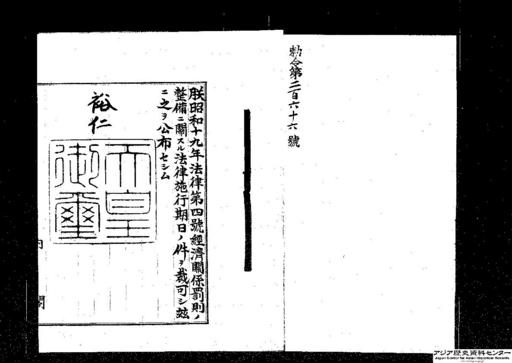 勅令第二百六十六號
朕昭和十九年法律第四號經濟關係罰則ノ
整備ニ關スル法律施行期日ノ件ヲ裁可シ茲
ニ之ヲ公布セシム
裕仁
天皇
御璽
内
閣
アジア歴史資料センター
Japan Center for Asian Historical Records